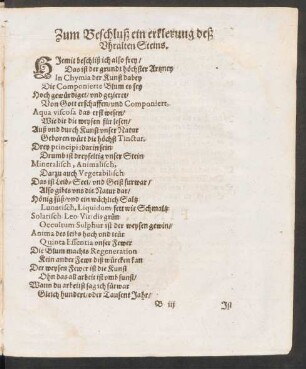 Zum Beschluß ein erklerung deß
Vhralten Steins.
HIemit beschließ ich also frey/
Das ist der grundt höchster Artzney
In Chymia der Kunst dabey
Die Componierte Blum es sey
Hoch gewürdiget/ vnd gezieret
Von Gott erschaffen/ vnd Componiert.
Aqua viscosa das erst wesen/
Wie die die weysen für lesen/
Auß vnd durch Kunst vnser Natur
Geboren würt die höchst Tinctur.
Drey principia: darin sein
Drumb ist dreyseitig vnser Stein
Mineralisch, Animalisch,
Darzu auch Vegetabilisch
Das ist Leib/ Seel/ vnd Geist furwar/
Also gibts vns die Natur dar/
König süß/ vnd ein wächlich Saltz
Lunarisch, Liquidum fett wie Schmaltz
Solarisch Leo Viridis grün
Occultum Sulphur ist der weysen gewin/
Anima des leibs hoch vnd teur
Quinta Essentia vnser Fewer
Die Blum machts Regeneration
Kein ander Fewr diß würcken kan
Der weysen Fewer ist die Kunst
Ohn das all arbeit ist vmb sunst/
Wann du arbeitst sag ich fürwar
Gleich hundert/ oder Tausent Jahr/
B iij
Ist